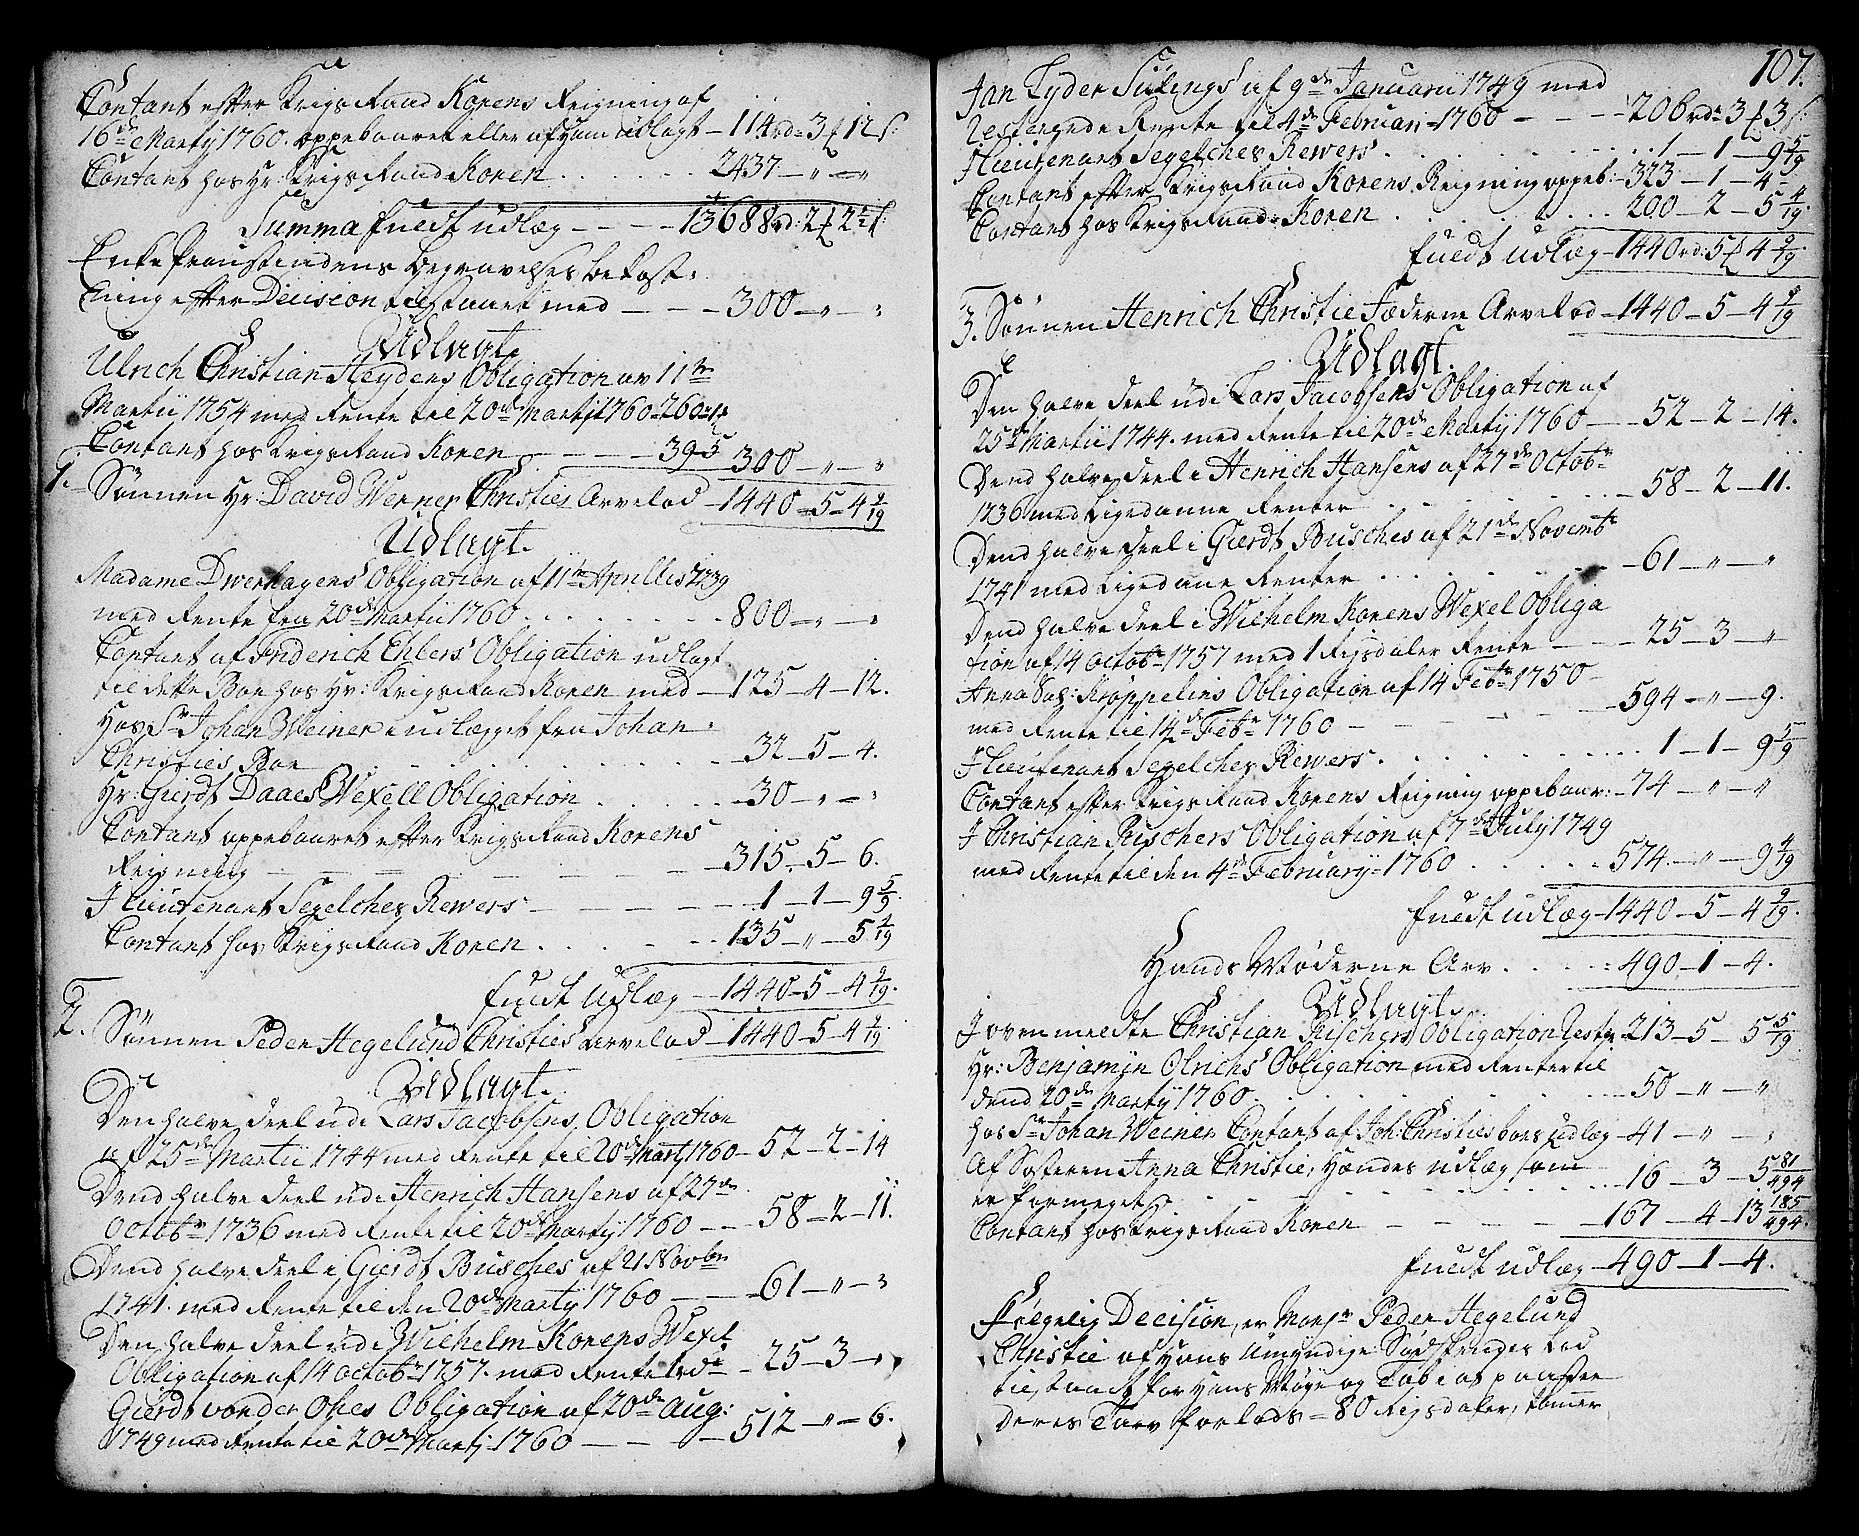 Contant efter Krigs Raad Korens Reigning af
16de Martij 1760. oppebaaret eller af ham udlagt – 114 rd 3 ƒ 12 s:
Contant hos Hr: Krigs Raad Koren . . . . . 2437 – " – "
Summa fuldt udlæg – – – 13688 rd: 2 ƒ 2 s:
Enke
Begravelses bekost:
ning efter Decision tilstaaet med – – – 300 – " – "
Udlagt.
Ulrich Christian Heydens Obligation av 11te
Martii 1754 med Rente til 20de Martij 1760 – 260 –
Contant hos Krigs Raad Koren – – – 39 – 5 300 – " – "
1. Sønnen Hr: David Werner Christies Arvelod – 1440 – 5 – 4 9/19
Udlagt.
Madame Dwerhagens Obligation af 11te Aprillis 1739
med Rente fra 20de Martii 1760 . . . . . 800 – " – "
Contant af Friderich Ehlers Obligation udlagt
til dette Boe hos Hr: Krigs Raad Koren med – 125 – 4 – 12.
Hos Sr Johan Weiner udlægget fra Johan
Christies Boe . . . . . 32 – 5 – 4.
Hr: Gierdt Daaes Wexell Obligation . . . . . 30 – " – "
Contant oppebaaret efter Krigs Raad Korens
Reigning – – – 315 – 5 – 6.
I Lieutenant Segelches Rewers – – – 1 – 1 – 9 5/9.
Contant hos Krigs Raad Koren . . . . . 135 – " – 5
fuldt Udlæg – 1440 – 5 – 4 9/19.
2. Sønnen Peder Hegelund Christies Arvelod – 1440 – 5 – 4 9/19
Udlagt.
Den halve deel udi Lars Jacobsens Obligation
af 25de Martii 1744 med Rente til 20de Martj 1760 – 52 – 2 – 14
Dend halve deel udi Henrich Hansens af 27de
Octobr 1736 med Rente til 20de Martij 1760 – – 58 – 2 – 11.
Dend halve deel i Gierdt Busches af 21 Novbr
1741. med Rente til den 20de Martij 1760 – – 61 – " – "
Den halve deel udi Wilhelm Korens Wexel
Obligation af 14 octobr 1757. med Rente – 25 – 3 – "
Gierdt vonder Ohes Obligation af 20de Aug:
1749 med Rente til 20de Martij 1760 – – – 512 – " – 6.
107.
Jan Lyder Sülings af 9de Januarii 1749 med
resterende Rente til 4de Februari 1760 – – – 206 rd 3 ƒ 3 s:
I Lieutenant Segelches Rewers . . . . . 1 – 1 – 9 5/9
Contant efter Krigs Raad Korens Reigning oppeb: – 323 – 1 – 4 –
Contant hos Krigs Raad Koren . . . . . 200 – 2 – 5 4/19.
fuldt udlæg – 1440 rd: 5 ƒ 4 9/19.
3. Sønnen Henrich Christie Fæderne Arvelod – 1440 – 5 – 4 9/19
Udlagt.
Den halve deel udi Lars Jacobsens Obligation af
25de Martii 1744. med Rente til 20de Martij 1760 – 52 – 2 – 14.
Dend halve deel i Henrich Hansens af 27de Octobr
1736 med Ligedanne Renter . . . . . 58 – 2 – 11.
Dend halve deel i Gierdt Busches af 21de Novembr
1741 med Ligedane Renter . . . . . 61 – " – "
Dend halve deel i Wilhelm Korens Wexel Obliga
tion af 14 octobr 1757 med 1 Rigsdaler Rente – – 25 – 3 – "
Anna Sal: Køppelins Obligation af 14 Febr 1750
med Rente til 14de Febr 1760 – – – 594 – " – 9.
I Lieutenant Segelches Rewers . . . . . 1 – 1 – 9 5/9
Contant efter Krigs Raad Korens Reigning oppebaar: – 74 – " – "
I Christian Fischers Obligation af 7de July 1749
med Rente til den 4de February 1760 . . . . 574 – " – 9
fuldt udlæg – 1440 – 5 – 4 9/19.
Hands Møderne Arv . . . . . 490 – 1 – 4.
Udlagt.
I ovenmeldte Christian Fischers Obligation – 213 – 5 – 5
Hr: Benjamin Olrichs Obligation med Renter til
dend 20de Martij 1760 . . . . . 50 – " – "
hos Sr Johan Weiner Contant af Joh: Christies boes udlæg – 41 – " – "
Af Søsteren Anna Christie, Hændes udlæg som
er formeget . . . . . 16 – 3 – 5 81/494
Contant hos Krigs Raad Koren – – – 167 – 4 – 13 185/494.
fuldt udlæg – 490 – 1 – 4.
Følgelig Decision, er Monsr Peder Hegelund
Christie af Hans Umyndige Sødskendes Lod
tillagt for Hans Møye og Tab i at paasee
Deres Tarv forlods – 80 Rigsdaler,